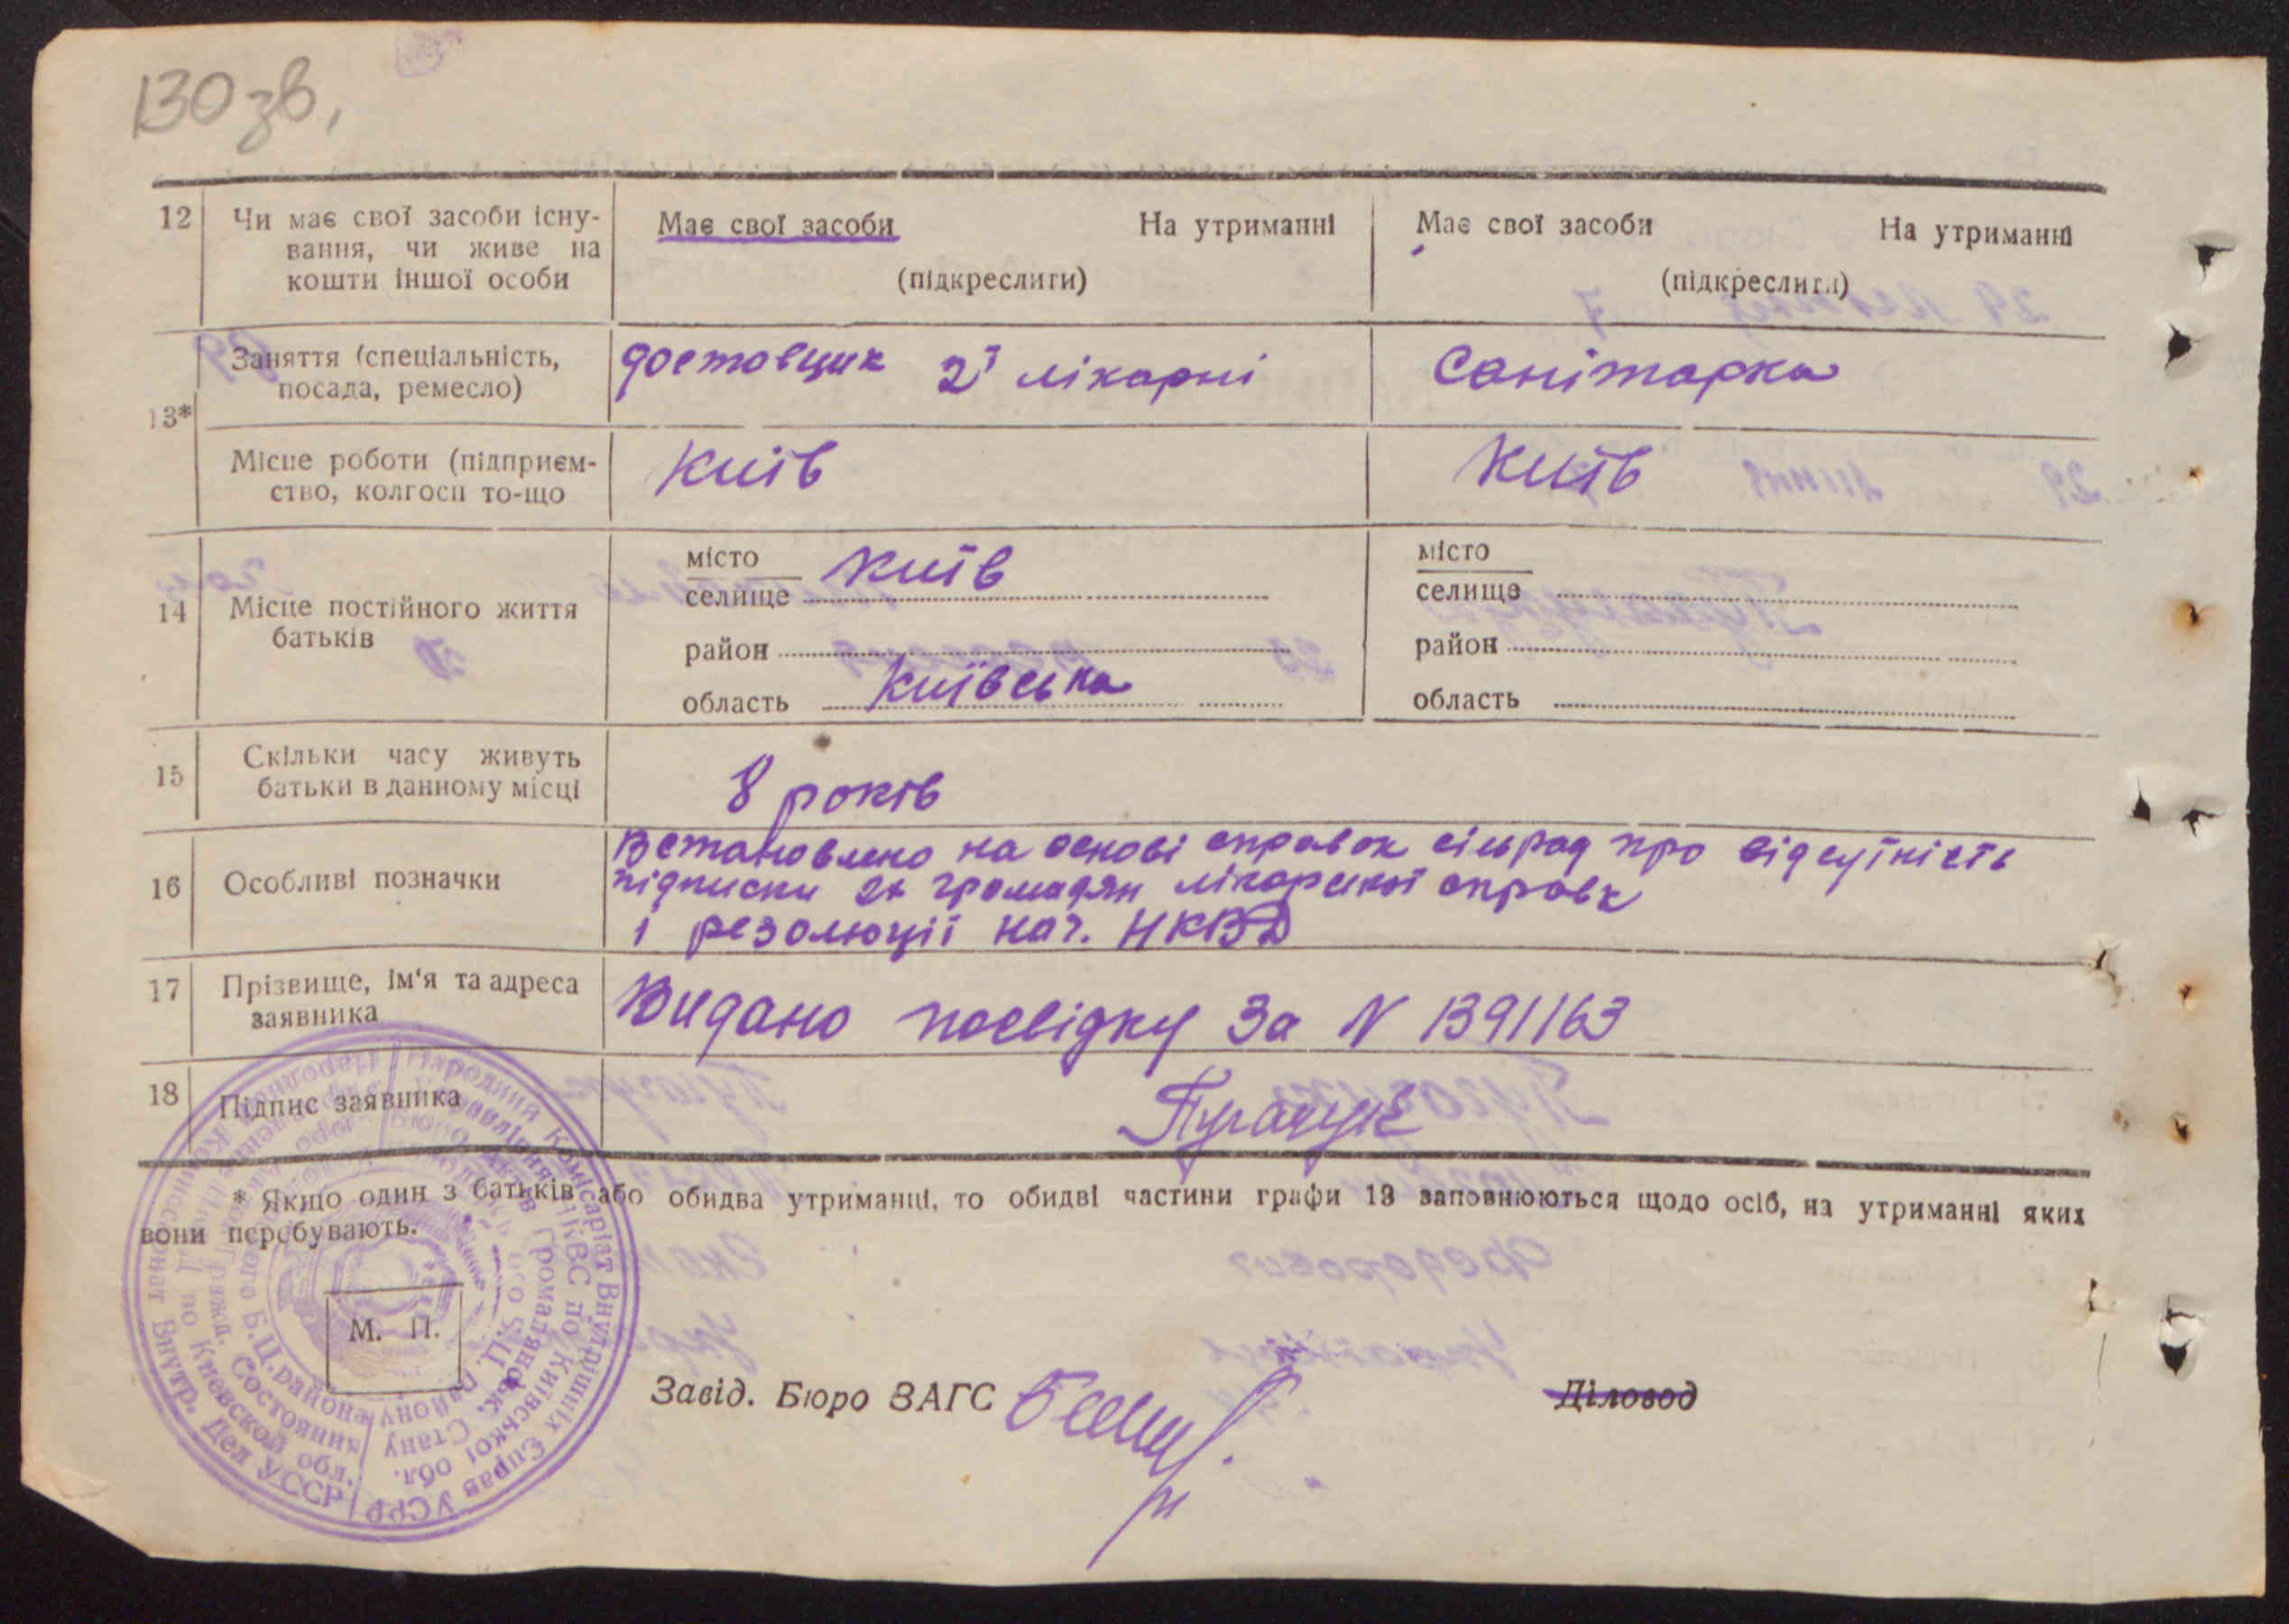 130 зв,
12 Чи має свої засоби існу-
вання, чи живе на
кошти іншої особи
Має свої засоби На утриманні
(підкреслити)
Має свої засоби На утриманні
(підкреслити)
13*
Заняття (спеціальність,
посада, ремесло)
достовщик 2ї лікарні
Санітарка
Місце роботи (підприєм-
ство, колгосп то-що
Київ
Київ
14 Місце постійного життя
батьків
місто Київ
селище
район
область Київська
місто
селище
район
область
15 Скільки часу живуть
батьки в данному місці
8 років
16 Особливі позначки
Встановлено на основі справок сільрад про відсутність
підписки 2х громадян лікарської справк
і резолюції нач. НКВД
17 Прізвище, ім'я та адреса
заявника
Видано посвідку За N 1391163
18 Підпис заявника
* Якщо один з батьків або обидва утриманці, то обидві частини графи 13 заповнюються щодо осіб, на утриманні яких
вони перебувають.
М. П.
Завід. Бюро ЗАГС
Діловод
Народний Комісаріат Внутрішніх Справ УСРР
Управління НКВС по Київській обл.
Внутр. Дел УССР
по Киевской обл.